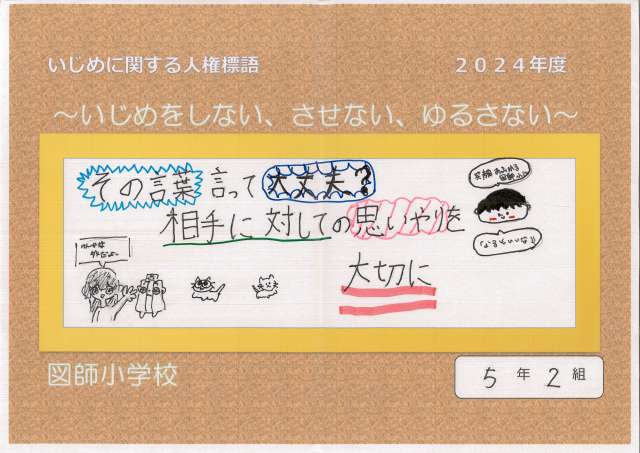 いじめに関する人権標語
２０２４年度
～いじめをしない、させない、ゆるさない～
その言葉 言って 大丈夫？
相手に 対しての思いやりを
大切に
図師小学校
５年２組